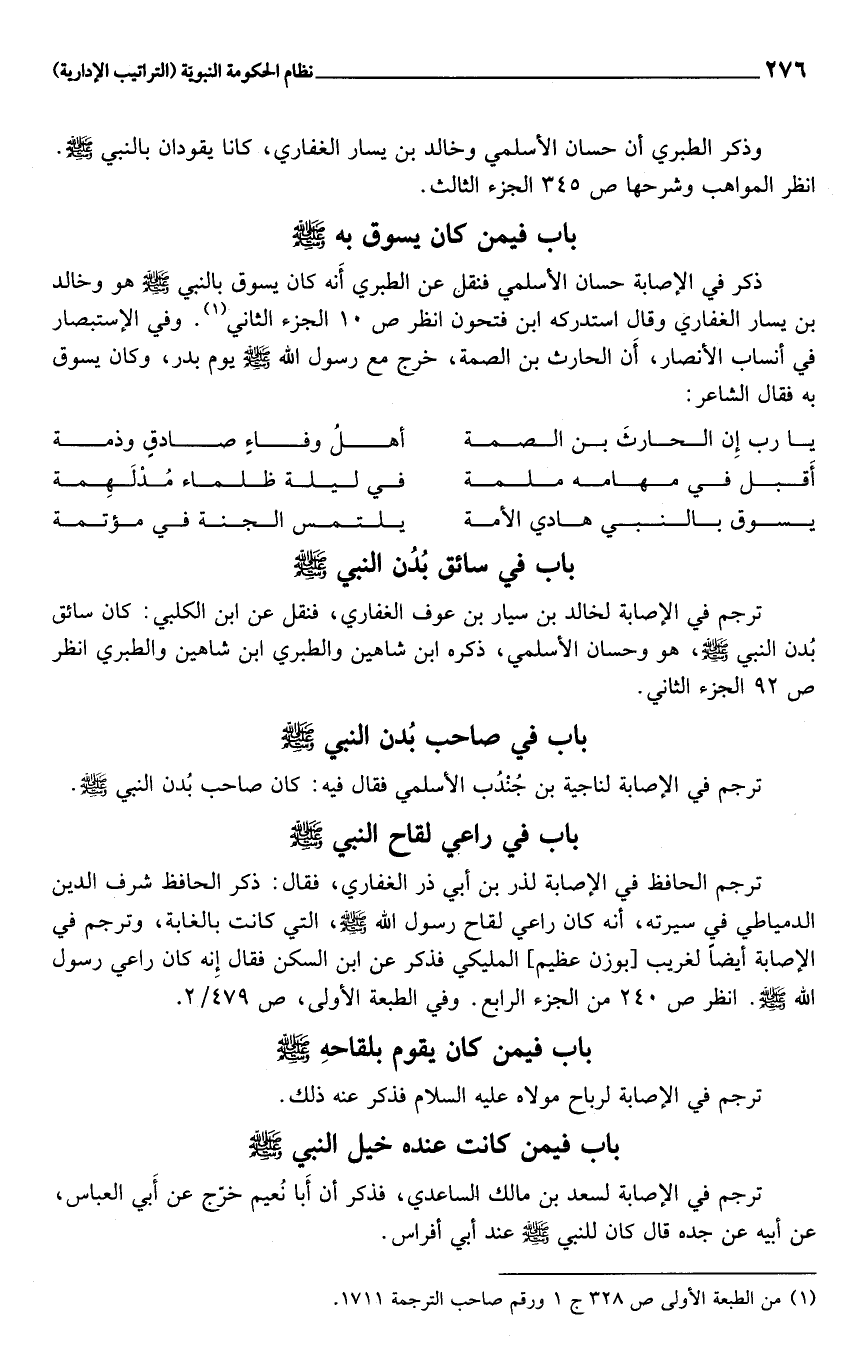 ٢٧٦ نظام الحكومة النبويّة (التراتيب الإدارية)
وذكر الطبري أن حسان الأسلمي وخالد بن يسار الغفاري، كانا يقودان بالنبي ﷺ.
انظر المواهب وشرحها ص ٣٤٥ الجزء الثالث.
باب فيمن كان يسوق به ﷺ
ذكر في الإصابة حسان الأسلمي فنقل عن الطبري أَنه كان يسوق بالنبي ﷺ هو وخالد
بن يسار الغفاري وقال استدركه ابن فتحون انظر ص ١٠ الجزء الثاني(١). وفي الإستبصار
في أنساب الأنصار، أَن الحارث بن الصمة، خرج مع رسول الله ﷺ يوم بدر، وكان يسوق
به فقال الشاعر:
يا رب إِن الحارثَ بن الصمة أهلُ وفاءٍ صادقٍ وذمة
أَقبل في مهامه ملمة في ليلة ظلماء مُدْلَهِمة
يسوق بالنبي هادي الأمة يلتمس الجنة في مؤتمة
باب في سائق بُدُن النبي ﷺ
ترجم في الإصابة لخالد بن سيار بن عوف الغفاري، فنقل عن ابن الكلبي: كان سائق
بُدن النبي ﷺ، هو وحسان الأسلمي، ذكره ابن شاهين والطبري ابن شاهين والطبري انظر
ص ٩٢ الجزء الثاني.
باب في صاحب بُدن النبي ﷺ
ترجم في الإصابة لناجية بن جُنْدُب الأسلمي فقال فيه: كان صاحب بُدن النبي ﷺ.
باب في راعي لقاح النبي ﷺ
ترجم الحافظ في الإصابة لذر بن أبي ذر الغفاري، فقال: ذكر الحافظ شرف الدين
الدمياطي في سيرته، أنه كان راعي لقاح رسول الله ﷺ، التي كانت بالغابة، وترجم في
الإصابة أيضاً لغريب [بوزن عظيم] المليكي فذكر عن ابن السكن فقال إِنه كان راعي رسول
الله ﷺ. انظر ص ٢٤٠ من الجزء الرابع. وفي الطبعة الأولى، ص ٢/٤٧٩.
باب فيمن كان يقوم بلقاحهِ ﷺ
ترجم في الإصابة لرباح مولاه عليه السلام فذكر عنه ذلك.
باب فيمن كانت عنده خيل النبي ﷺ
ترجم في الإصابة لسعد بن مالك الساعدي، فذكر أن أَبا نُعيم خرّج عن أَبي العباس،
عن أبيه عن جده قال كان للنبي ﷺ عند أبي أفراس.
(١) من الطبعة الأولى ص ٣٢٨ ج ١ ورقم صاحب الترجمة ١٧١١.